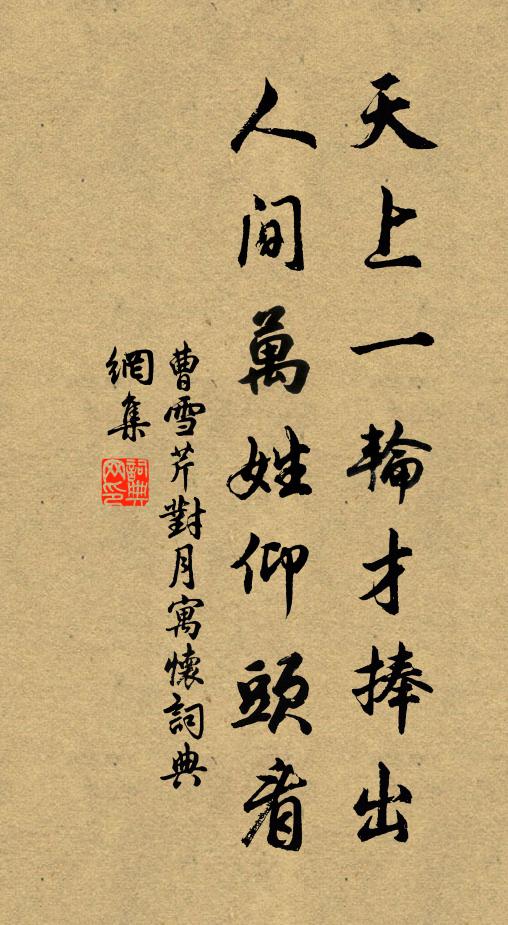 天上一輪才捧出
人间萬姓仰頭看
曹雪芹對月寓懷詞典
網集
詞典
网印